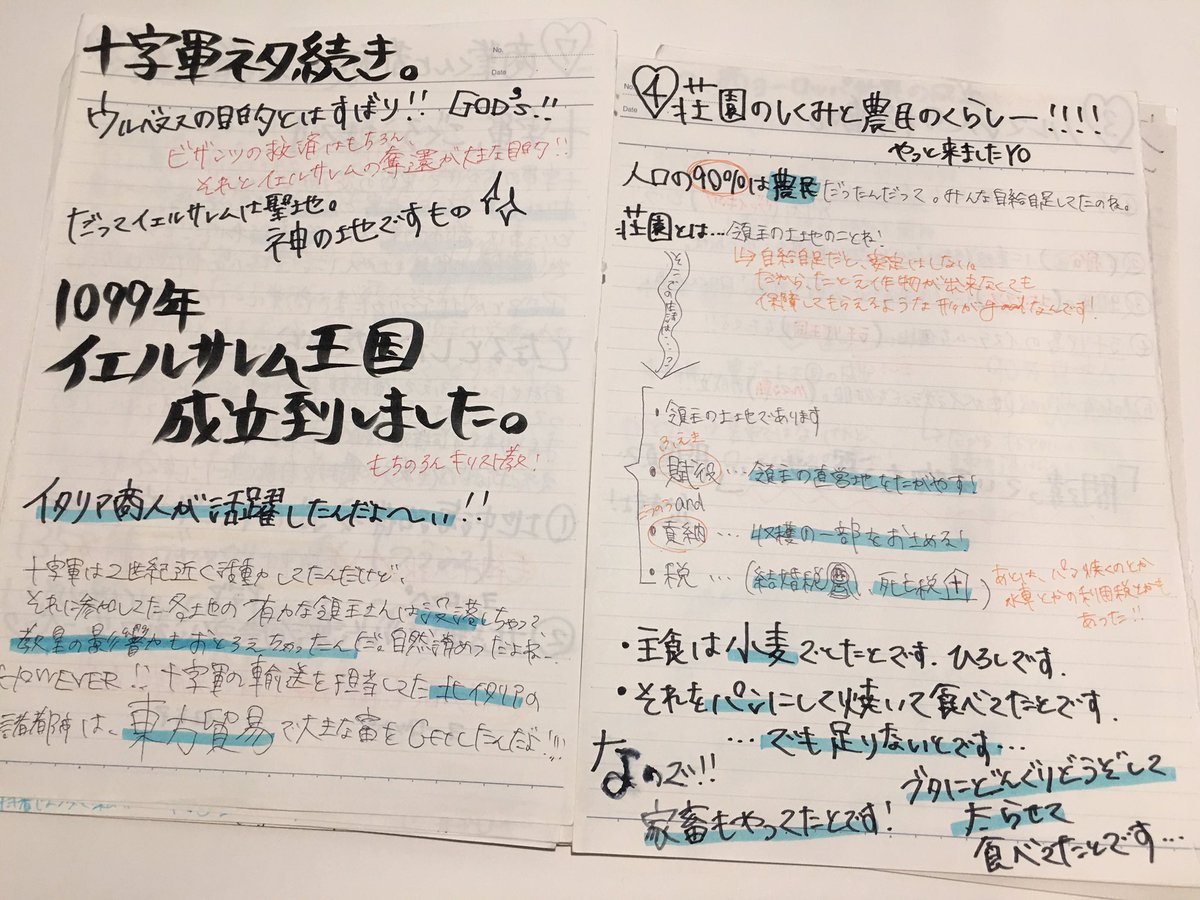 十字軍ネタ続き。
No.
Date
ウルバヌスの目的とはずばり!! GOD's!!
ビザンツの救済はもちろん、
それとイェルサレムの奪還が大きな目的!!
だってイェルサレムは聖地。
神の地ですもの
1099年
イェルサレム王国
成立到しました。
もちのろんキリスト教!
イタリア商人が活躍したんだよ〜!!
十字軍は2世紀近く活動してたんだけど、
それに参加してた各土地の有力な領主さんは没落しちゃって
教皇の影響力もおとろえちゃったんだ。自然諦めつだよね…
HOWEVER!! 十字軍の輸送を担当してた北イタリアの
諸都市は、東方貿易で大きな富をGetしたんだよ!!!
No.
Date
④荘園のしくみと農民のくらしー!!!!
やっと来ましたYO
人口の90%は農民だったんだって。みんな自給自足してたのね。
荘園とは…領主の土地のことね!
↳自給自足だと、安定はしない。
だから、たとえ作物が出来なくても
保障してもらえるような形がgoodなんです!
そこでの生活は…?
・領主の土地であります
ふえき
・賦役…領主の直営地をたがやす!
こうのう and
・貢納…収穫の一部をおさめる!
・税…(結婚税、死亡税)
あとは、パン焼くのとか
水車とかの利用税とかも
あった!!
・主食は小麦でしたとです。ひろしです。
・それをパンにして焼いて食べてたとです。
…でも足りないとです…
なので!!
ブタにどんぐりどうぞして
家畜もやってたとです!
たらせて
食べてたとです…